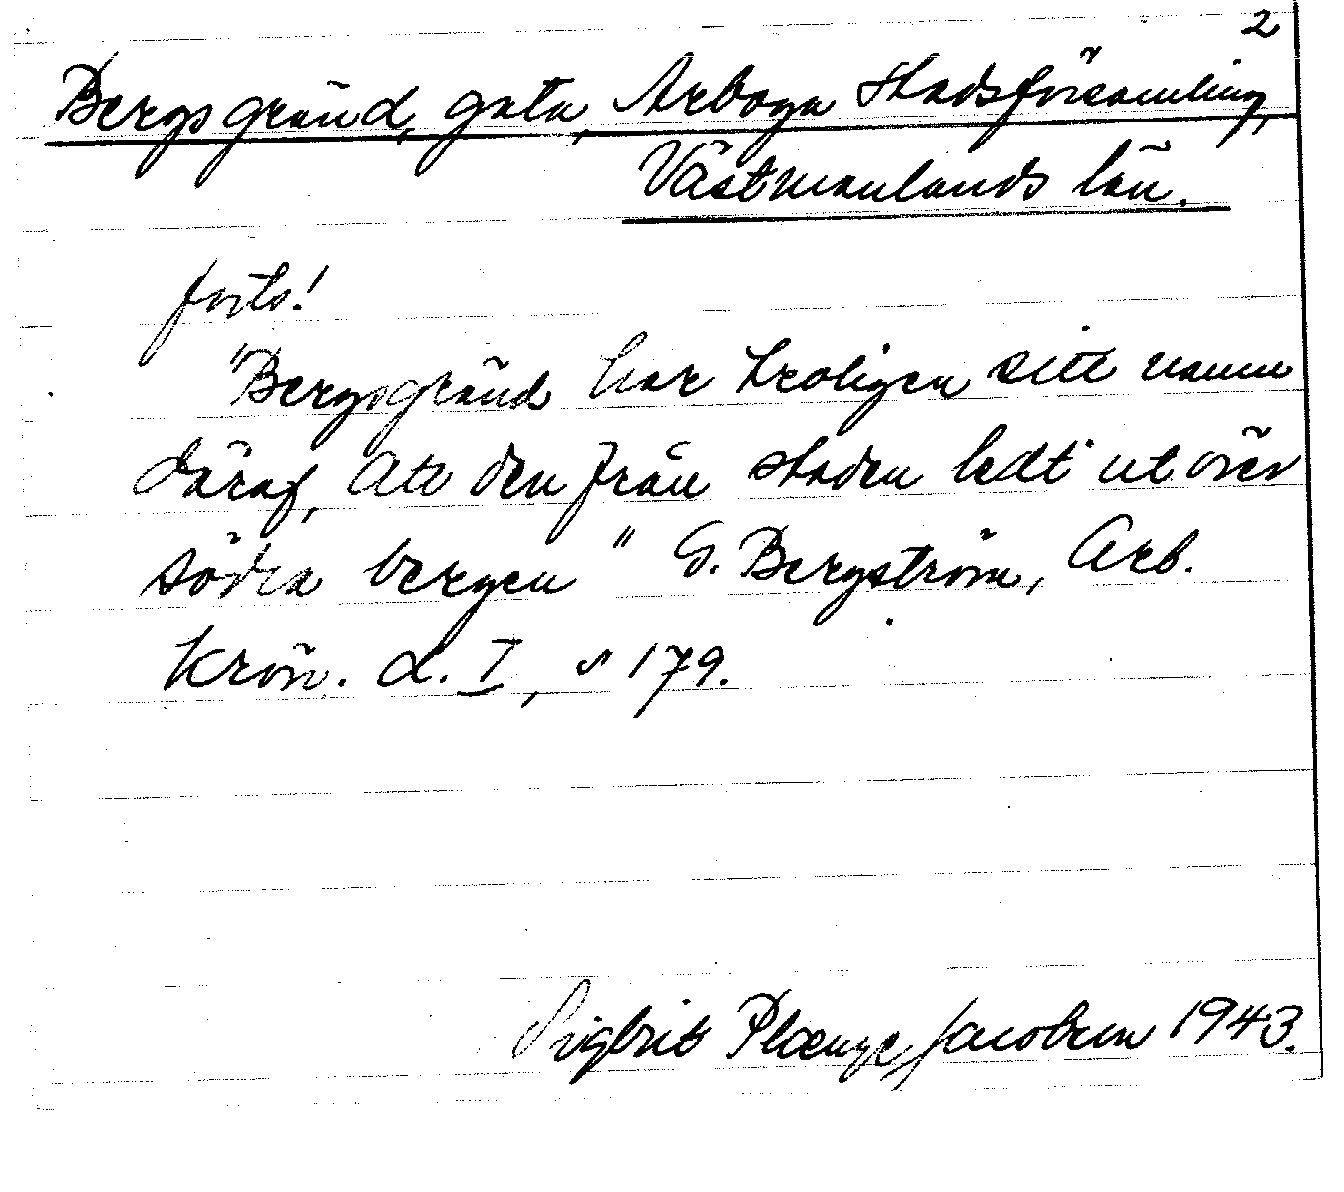 2
Bergsgränd, gata, Arboga stadsförsamling,
Västmanlands län.
forts!
"Bergsgränd har troligen sitt namn
däraf, att den från staden ledt ut över
södra bergen" G. Bergström, Arb.
Krön. d. I, s 179.
Sigbrit Plænge Jacobson 1943.